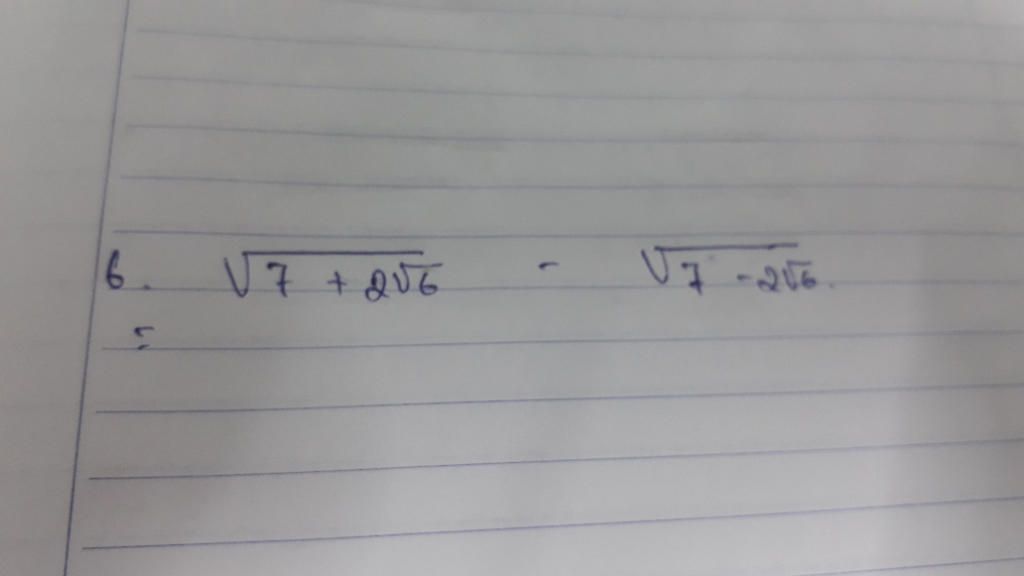 6. √(7 + 2√6) - √(7 - 2√6).
=